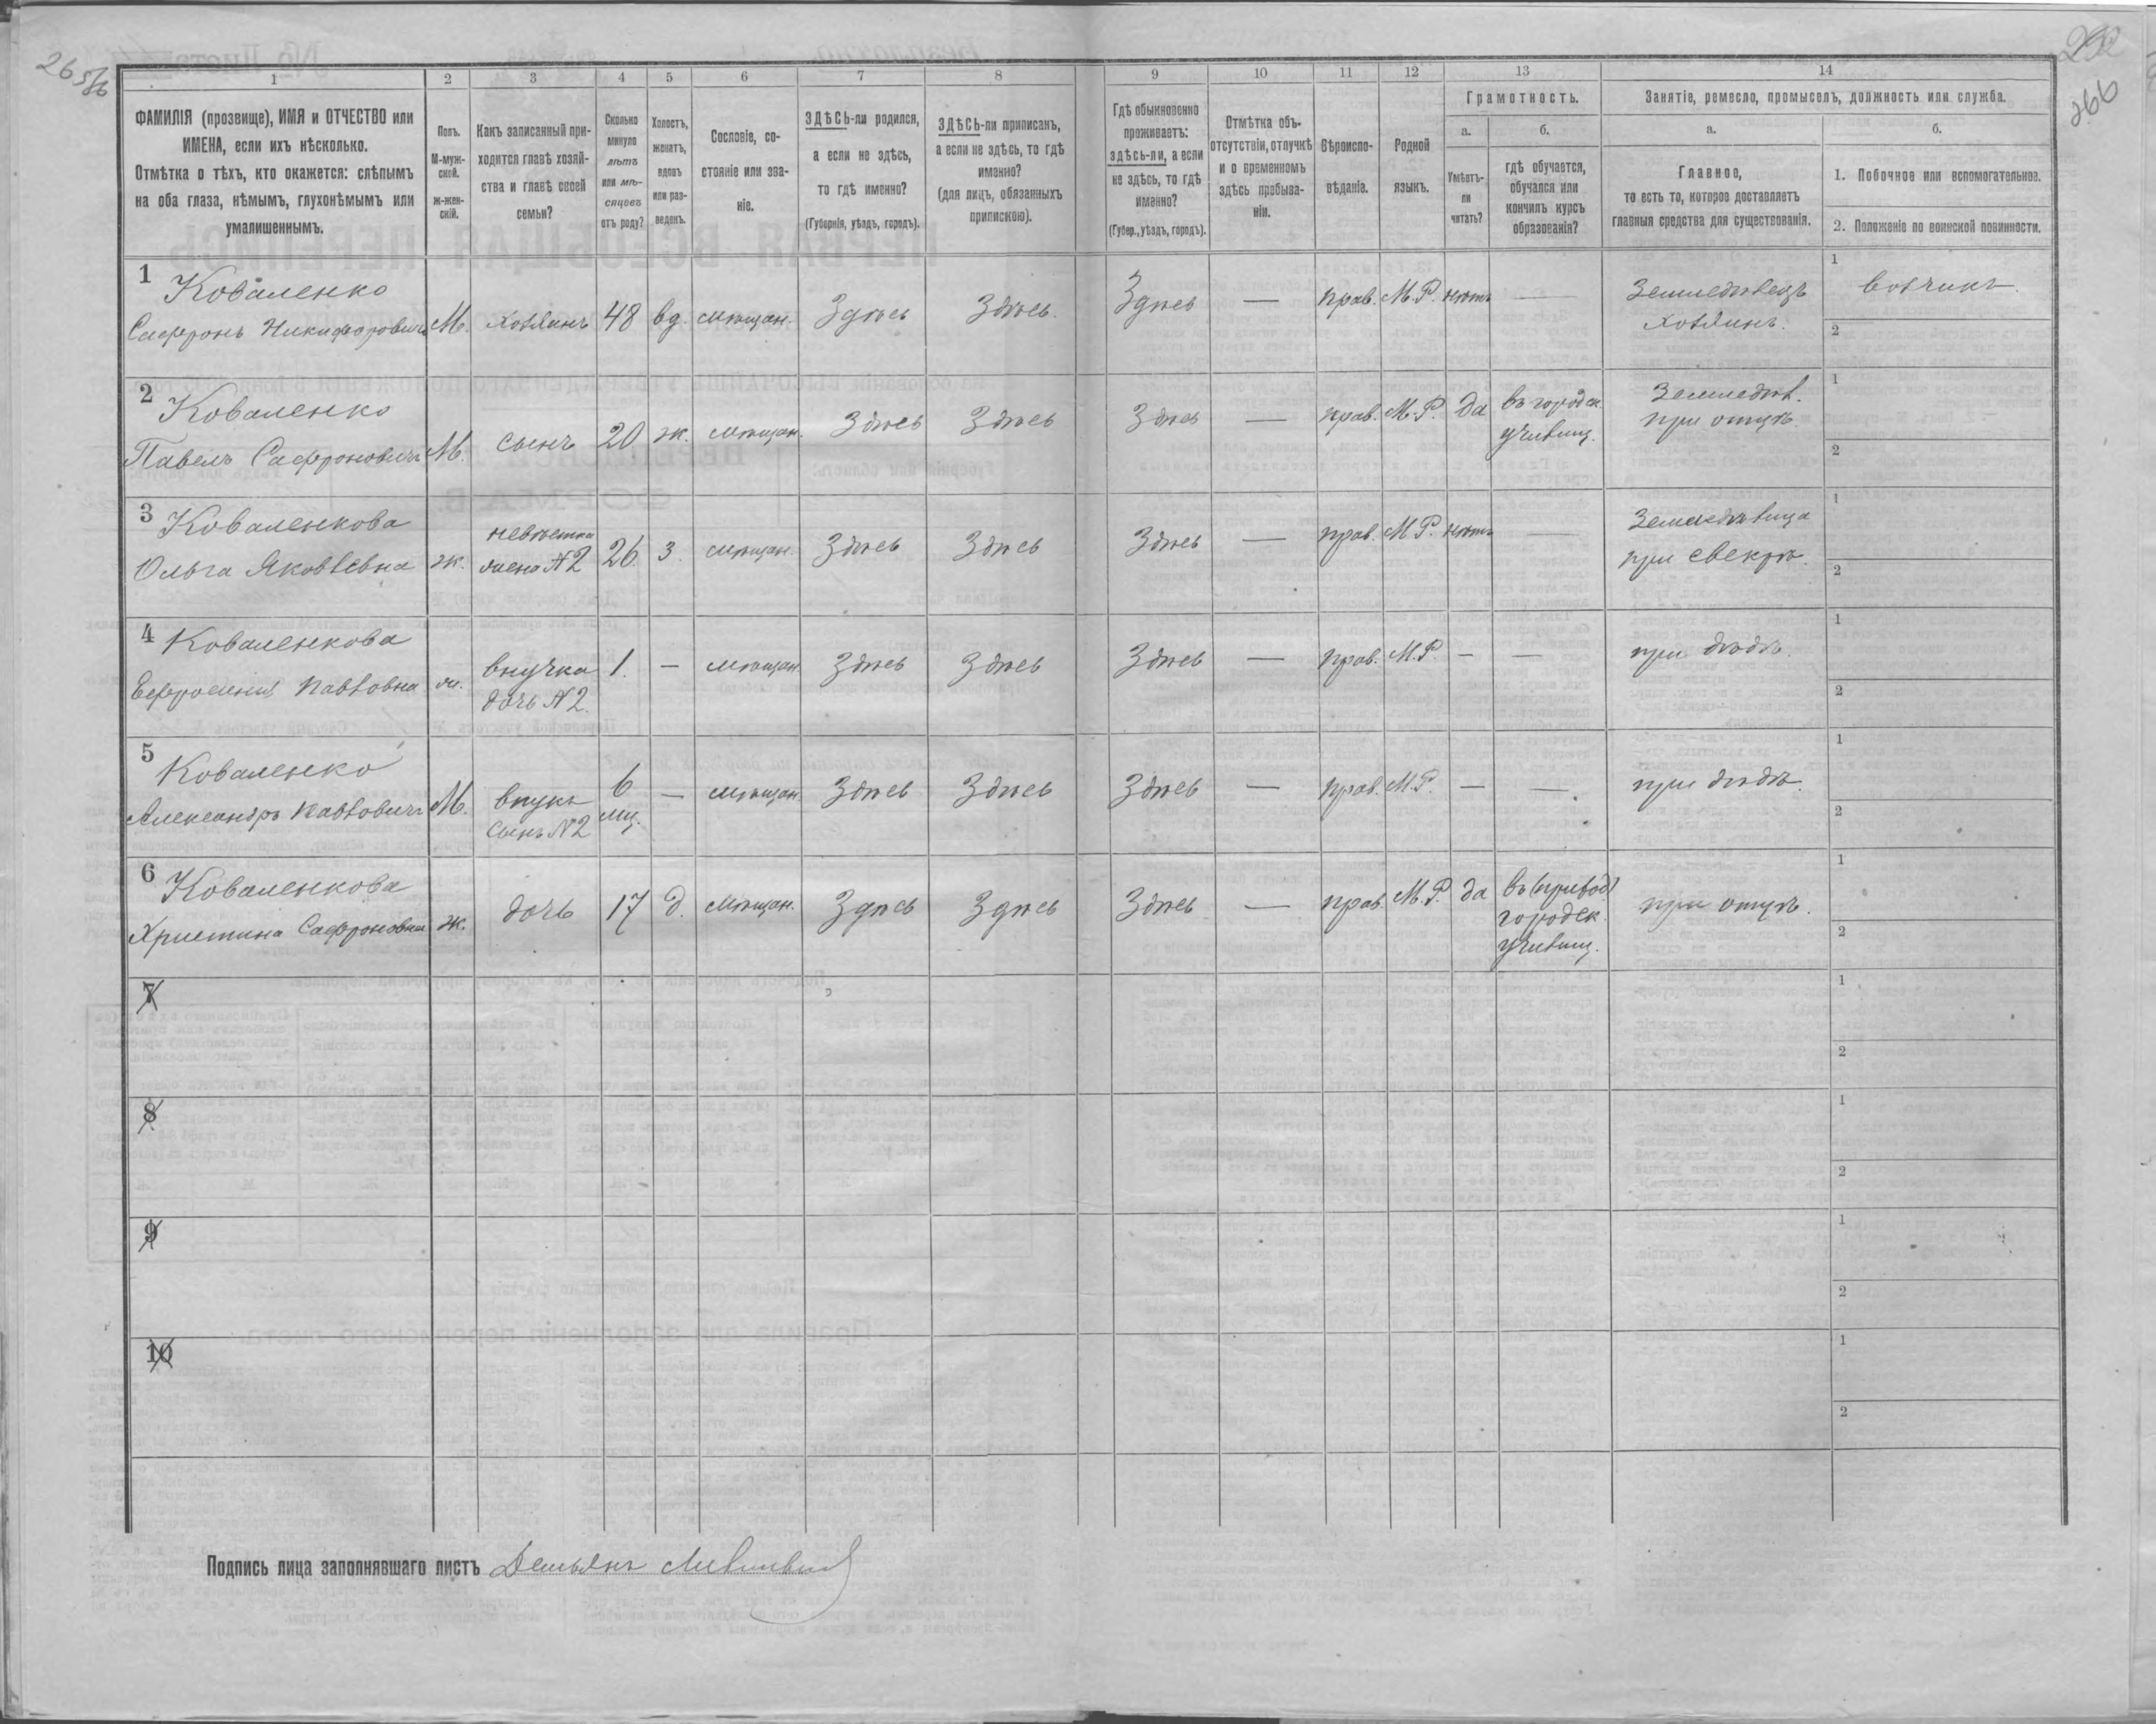 265
266
1 2 3 4 5 6 7 8 9 10 11 12 13 14
ФАМИЛІЯ (прозвище), ИМЯ и ОТЧЕСТВО или
ИМЕНА, если ихъ нѣсколько.
Отмѣтка о тѣхъ, кто окажется: слѣпымъ
на оба глаза, нѣмымъ, глухонѣмымъ или
умалишеннымъ.
Полъ.
М-муж-
ской.
ж-жен-
скій.
Какъ записанный при-
ходится главѣ хозяй-
ства и главѣ своей
семьи?
Сколько
минуло
лѣтъ
или мѣ-
сяцевъ
отъ роду?
Холостъ,
женатъ,
вдовъ
или раз-
веденъ.
Сословіе, со-
стояніе или зва-
ніе.
ЗДѢСЬ-ли родился,
а если не здѣсь,
то гдѣ именно?
(Губернія, уѣздъ, городъ).
ЗДѢСЬ-ли приписанъ,
а если не здѣсь, то гдѣ
именно?
(для лицъ, обязанныхъ
припискою).
Гдѣ обыкновенно
проживаетъ:
здѣсь-ли, а если
не здѣсь, то гдѣ
именно?
(Губер., уѣздъ, городъ).
Отмѣтка объ
отсутствіи, отлучкѣ
и о временномъ
здѣсь пребыва-
ніи.
Вѣроиспо-
вѣданіе.
Родной
языкъ.
Грамотность.
а.
Умѣетъ-
ли
читать?
б.
гдѣ обучается,
обучался или
кончилъ курсъ
образованія?
Занятіе, ремесло, промыселъ, должность или служба.
а.
Главное,
то есть то, которое доставляетъ
главныя средства для существованія.
б.
1. Побочное или вспомогательное.
2. Положеніе по воинской повинности.
1 Коваленко
Сафронъ Никифоровичъ М. хозяинъ 48 вд. мѣщан. Здѣсь Здѣсь. Здѣсь — прав. М.Р. нѣтъ —
Земледѣлецъ
хозяинъ.
1
2
2 Коваленко
Павелъ Сафроновичъ М. сынъ 20 ж. мѣщан. Здѣсь Здѣсь Здѣсь — прав. М.Р. да въ городск.
училищ.
Земледѣл.
при отцѣ.
1
2
3 Коваленкова
Ольга Яковлевна ж. невѣстка
жена №2 26 з. мѣщан. Здѣсь Здѣсь Здѣсь — прав. М.Р. нѣтъ —
Земледѣлица
при свекрѣ.
1
2
4 Коваленкова
Ефросинія Павловна ж. внучка
дочь №2. 1. — мѣщан. Здѣсь Здѣсь Здѣсь — прав. М.Р. — —
при дѣдѣ.
1
2
5 Коваленко
Александръ Павловичъ М. внукъ
сынъ №2 6
мц. — мѣщан. Здѣсь Здѣсь Здѣсь — прав. М.Р. — —
при дѣдѣ.
1
2
6 Коваленкова
Христина Сафроновна ж. дочь 17 д. мѣщан. Здѣсь Здѣсь Здѣсь — прав. М.Р. да
городск.
училищ.
при отцѣ.
1
2
7
1
2
8
1
2
9
1
2
10
1
2
Подпись лица заполнявшаго листъ Демьянъ